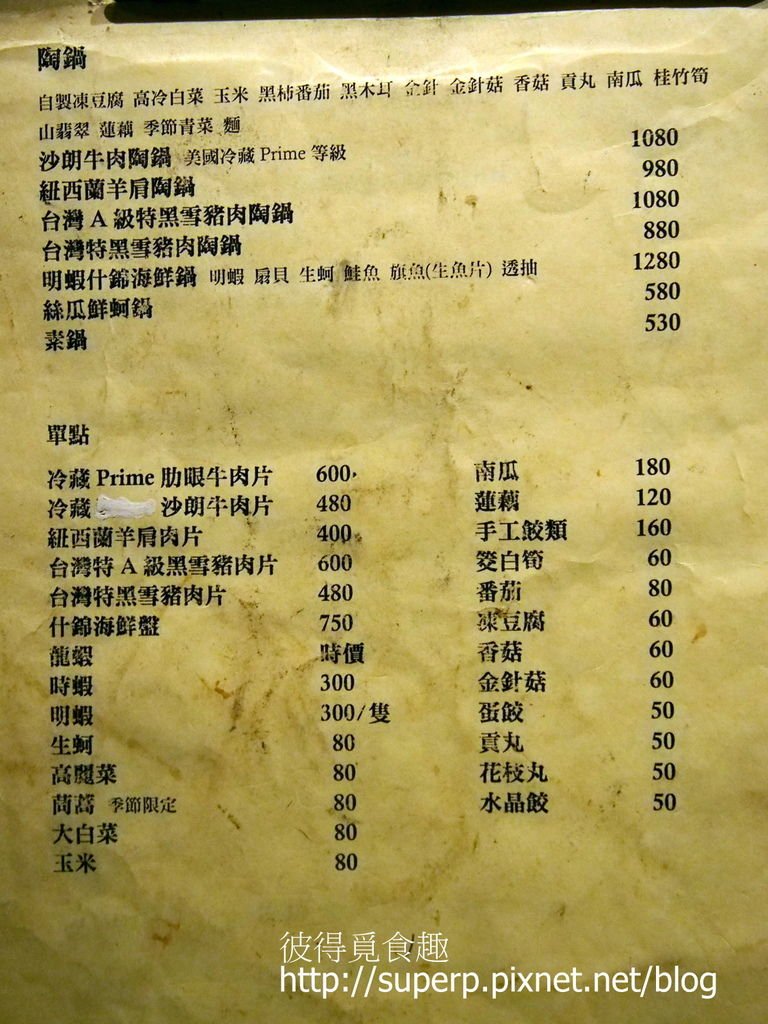 陶鍋
自製凍豆腐 高冷白菜 玉米 黑柿番茄 黑木耳 金針 金針菇 香菇 貢丸 南瓜 桂竹筍
山翡翠 蓮藕 季節青菜 麵
沙朗牛肉陶鍋 美國冷藏 Prime 等級 1080
紐西蘭羊肩陶鍋 980
台灣 A 級特黑雪豬肉陶鍋 1080
台灣特黑雪豬肉陶鍋 880
明蝦什錦海鮮鍋 明蝦 扇貝 生蚵 鮭魚 旗魚(生魚片) 透抽 1280
絲瓜鮮蚵鍋 580
素鍋 530
單點
冷藏 Prime 肋眼牛肉片 600
冷藏 沙朗牛肉片 480
紐西蘭羊肩肉片 400
台灣特 A 級黑雪豬肉片 600
台灣特黑雪豬肉片 480
什錦海鮮盤 750
龍蝦 時價
時蝦 300
明蝦 300/隻
生蚵 80
高麗菜 80
茼蒿 季節限定 80
大白菜 80
玉米 80
南瓜 180
蓮藕 120
手工餃類 160
筊白筍 60
番茄 80
凍豆腐 60
香菇 60
金針菇 60
蛋餃 50
貢丸 50
花枝丸 50
水晶餃 50
彼得覓食趣
http://superp.pixnet.net/blog